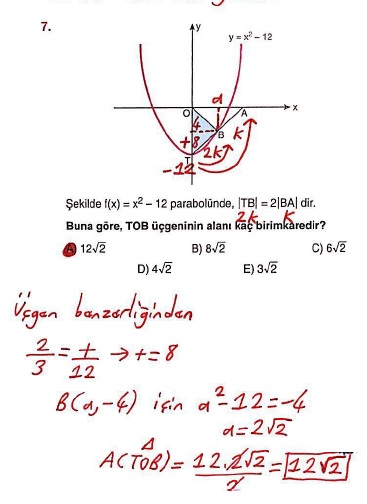 7.
y
y = x² – 12
a
O
A
x
4
B
k
+8
2k
T
-12
Şekilde f(x) = x² – 12 parabolünde, |TB| = 2|BA| dir.
2k k
Buna göre, TOB üçgeninin alanı kaç birimkaredir?
A) 12√2 B) 8√2 C) 6√2
D) 4√2 E) 3√2
Üçgen benzerliğinden
2/3 = t/12 → t = 8
B(a, -4) için a² - 12 = -4
a = 2√2
A(TOB) = 12.2√2/2 = 12√2